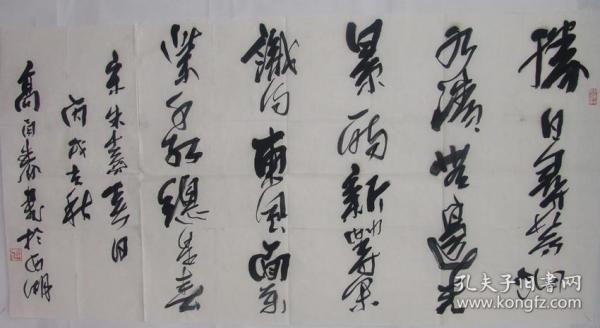 勝日尋芳泗
水濱無邊光
景一時新等閒
識得東風面萬
紫千紅總是春
宋朱熹春日
丙戌秋
高書於西湖
孔夫子旧书网
www.kongfz.com